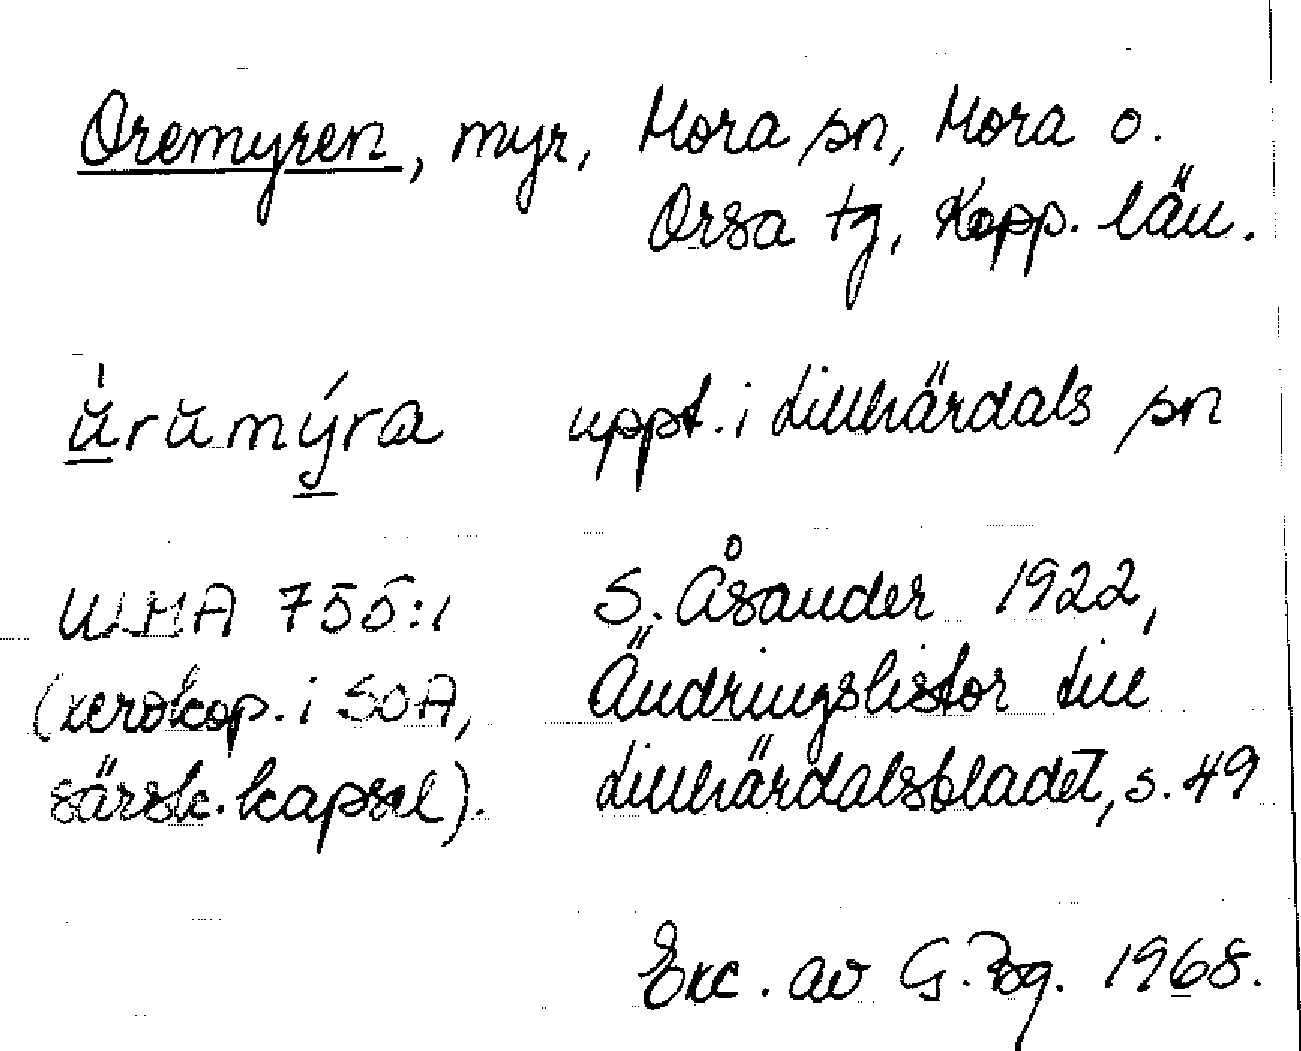 Oremyren, myr, Mora sn, Mora o.
Orsa tg, Kopp. län.
ŭ̀rŭmýra uppt. i Lillhärdals sn
ULMA 755:1 S. Åsander 1922,
(xerokop. i SOA, Ändringslistor till
särsk. kapsel). Lillhärdalsbladet, s. 49
Exc. av G. 1968.